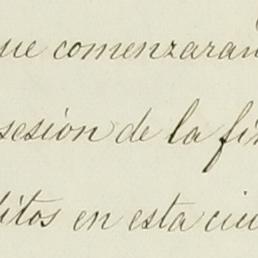 que comenzaran
sesión de la fin
ditos en esta ciu